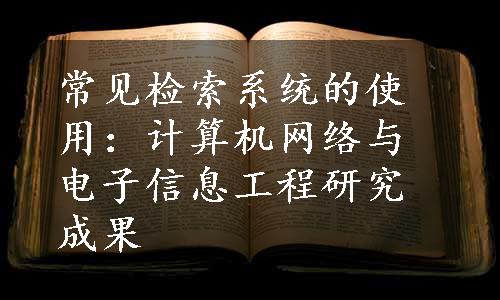 常见检索系统的使
用：计算机网络与
电子信息工程研究
成果